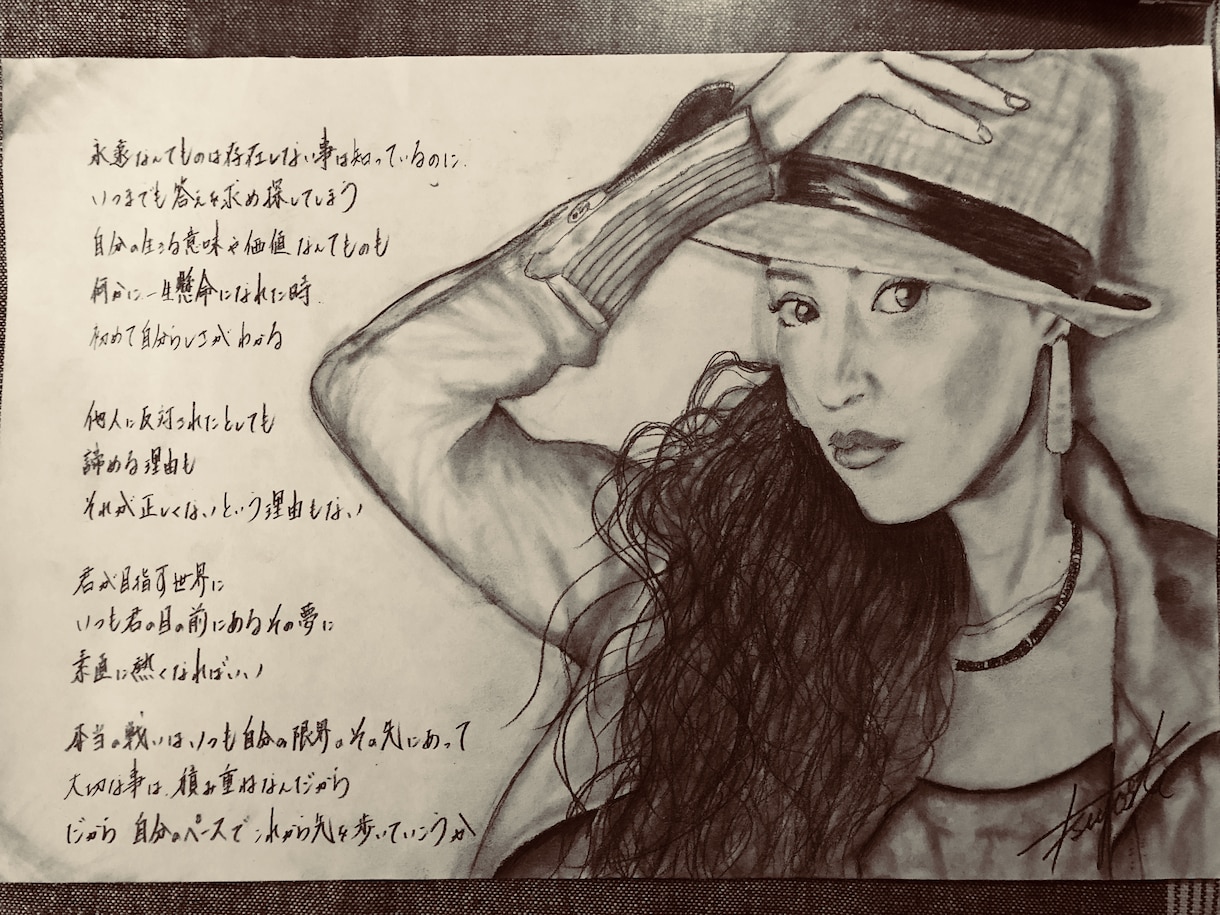 永遠なんてものは存在しない事は知っているのに
いつまでも答えを求め探してしまう
自分の生きる意味や価値なんてものも
何かに一生懸命になれた時
初めて自分らしさがわかる
他人に反対されたとしても
諦める理由も
それが正しくないという理由もない
君が目指す世界に
いつも君の目の前にあるその夢に
素直に熱くなればいい
本当の戦いはいつも自分の限界のその先にあって
大切な事は積み重ねなんだから
だから 自分のペースでこれから先を歩いていこうか